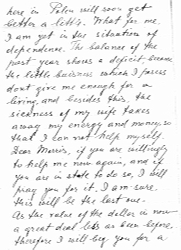 here in Polen will soon get
better a little. What for me,
I am yet in the situation of
dependence. The balance of the
past year shows a deficit because
the little buisness which I posses
dont give me enough for a
living, and besides this, the
sickness of my wife takes
away my energy and money, so
that I can not help myself.
Dear Morris, if you are willingly
to help me now again, and if
you are in state to do so, I will
pray you for it. I am sure,
this will be the last one.
As the value of the dollar is now
a great deal less as been before,
therefore I will beg you for a